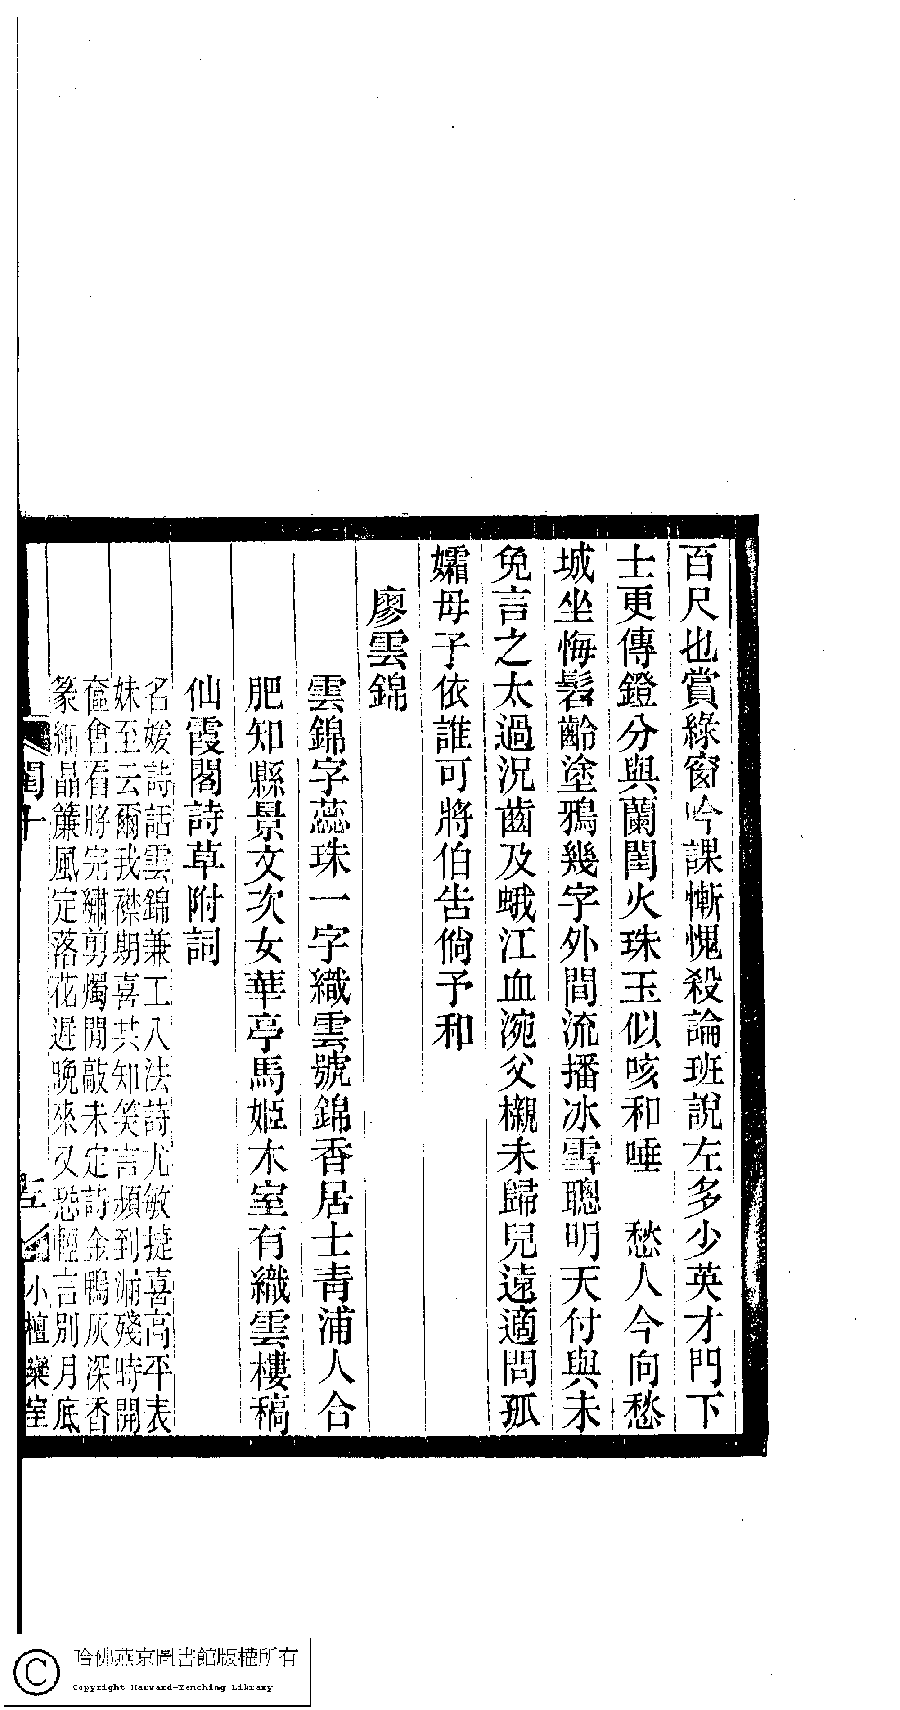 百尺也賞綠窗吟課慚愧殺論班說左多少英才門下
士更傳鐙分與蘭閨火珠玉似咳和唾　愁人今向愁
城坐悔髫齡塗鴉幾字外間流播冰雪聰明天付與未
免言之太過況齒及蛾江血涴父櫬未歸兒遠適問孤
孀母子依誰可將伯告倘予和
廖雲錦
雲錦字蕊珠一字織雲號錦香居士青浦人合
肥知縣景文次女華亭馬姬木室有織雲樓稿
仙霞閣詩草附詞
名媛詩話雲錦兼工八法詩尤敏捷喜高平表
妹至云爾我襟期喜共知笑言頻到漏殘時開
奩會看將完繡剪燭閒敲未定詩金鴨灰深香
篆細晶簾風定落花遲晚來又恐輕言別月底
閨
小檀欒室
哈佛燕京圖書館版權所有
Copyright Harvard-Yenching Library